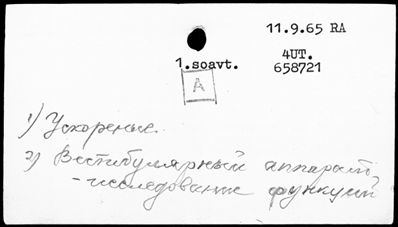 11.9.65 RA
4UT.
1.soavt. 658721
A
1) Ускорение.
2) Вестибулярный аппарат,
- исследование функций